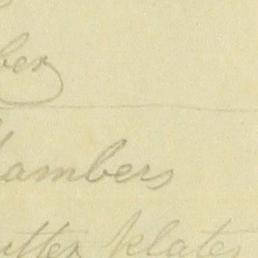 ber
ambers
utter plates